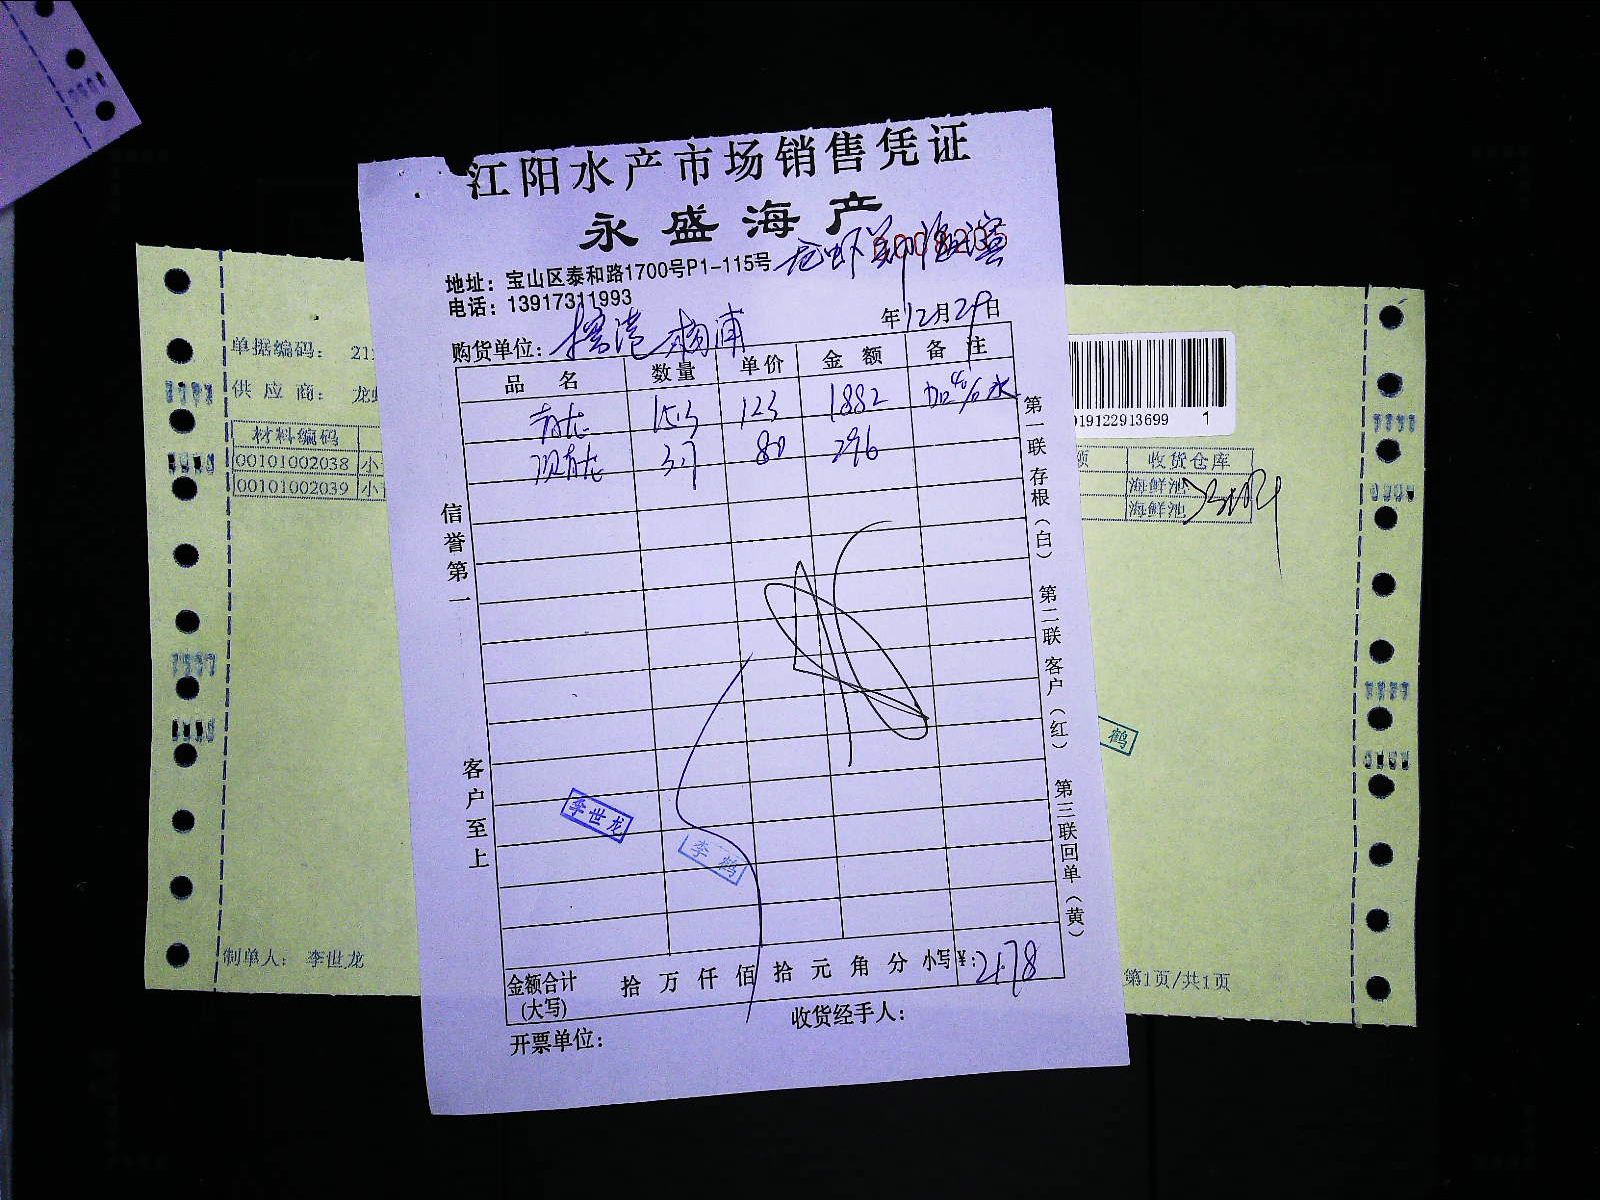 江阳水产市场销售凭证
永盛海产
地址：宝山区泰和路1700号P1-115号
电话：13917311993
购货单位：
年12月29日
品名 数量 单价 金额 备注
青龙 15.3 123 1882 加4%水
青龙 3.7 80 296
信誉第一
客户至上
第一联存根（白） 第二联客户（红） 第三联回单（黄）
李世龙
李鹤
金额合计(大写) 拾万仟佰拾元角分 小写¥：2178
开票单位：
收货经手人：
单据编码：
供应商：
材料编码
00101002038 小
00101002039 小
制单人：李世龙
019122913699 1
收货仓库
海鲜池
海鲜池
鹤
第1页/共1页